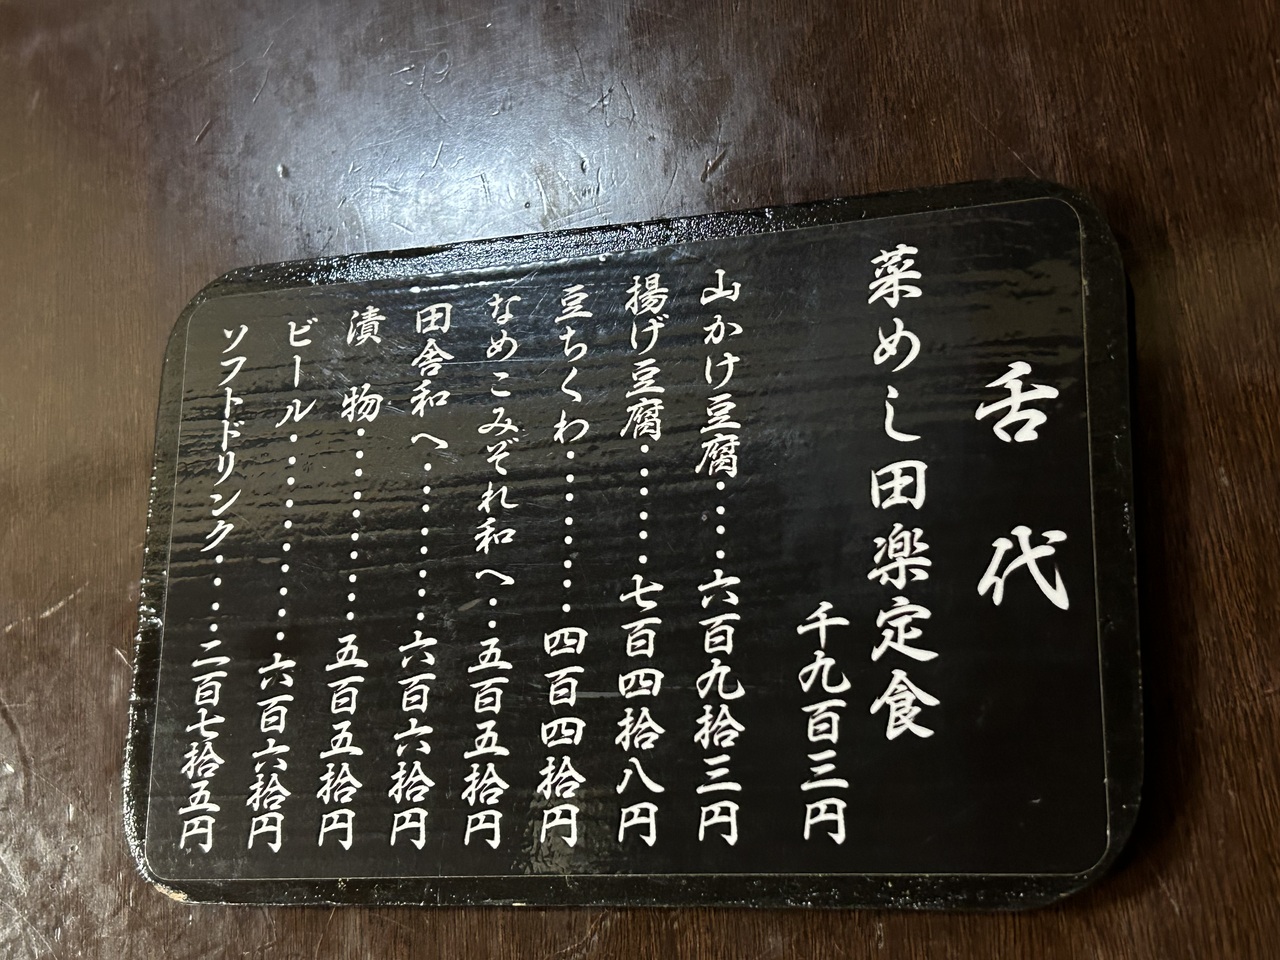 舌代
菜めし田楽定食
千九百三円
山かけ豆腐・・・・六百九拾三円
揚げ豆腐・・・・・七百四拾八円
豆ちくわ・・・・・・四百四拾円
なめこみぞれ和へ・・五百五拾円
田舎和へ・・・・・・六百六拾円
漬　物・・・・・・・五百五拾円
ビール・・・・・・・・・六百六拾円
ソフトドリンク・・・・二百七拾五円